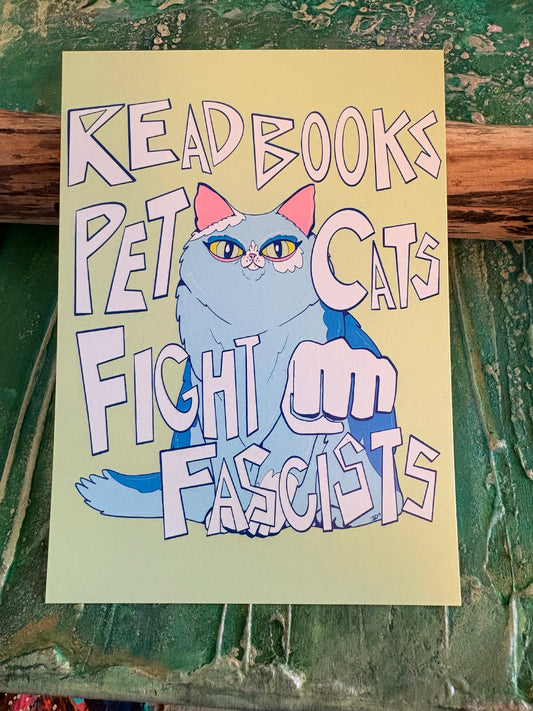 READ BOOKS
PET CATS
FIGHT
FASCISTS